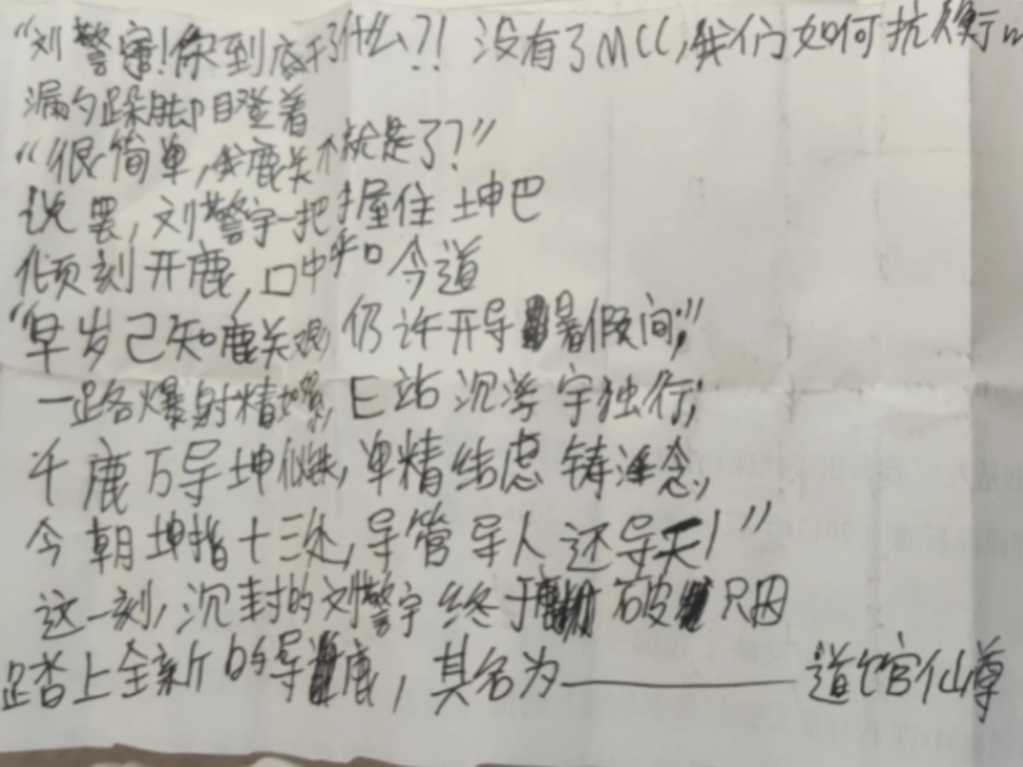 “刘警宇!你到底干了什么?! 没有了MCC,我们如何抗衡
漏勺跺脚瞪着
“很简单,我鹿关不就是了?”
说罢,刘警宇一把握住坤巴
倾刻开鹿,口中吟道
“早岁已知鹿关艰,仍许开导暑假间;”
一路爆射精如泉,E站沉浮宇独行;
千鹿万导坤似铁,单精结虑铸淫念;
今朝坤指十三处,导管导人还导天!”
这一刻,沉封的刘警宇终于破 只因
踏上全新的导鹿,其名为——道馆仙尊